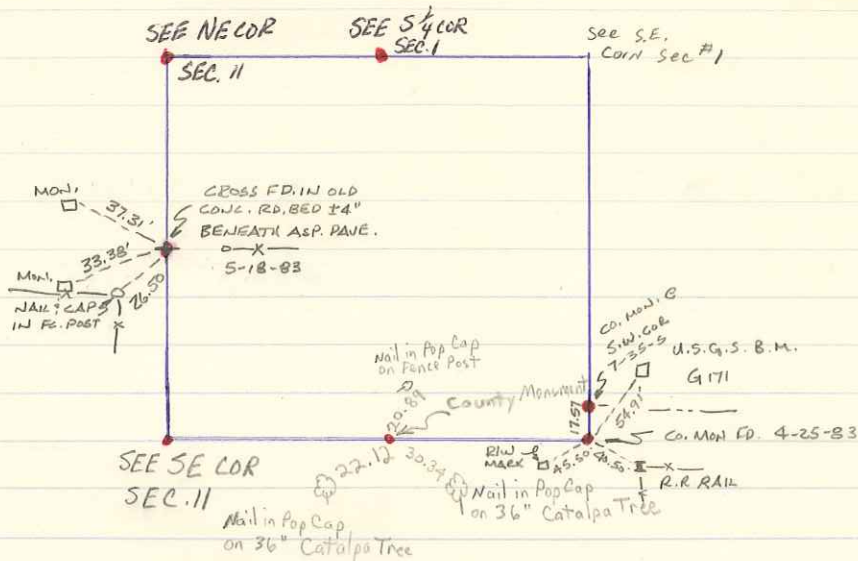 SEE NE COR
SEC. 11
SEE S ¼ COR
SEC. 1
See S.E.
Corn Sec #1
MON.
37.31'
CROSS FD. IN OLD
CONC. RD. BED ±4"
BENEATH ASP. PAVE.
5-18-83
MON.
33.38'
26.50
NAIL & CAPS
IN FC. POST
Nail in Pop Cap
on Fence Post
20.89
County Monument
CO. MON. @
S.W. COR
7-35-5
U.S.G.S. B.M.
G 171
17.57
54.91'
CO. MON FD. 4-25-83
R/W
MARK
45.50
R.R RAIL
SEE SE COR
SEC. 11
22.12
30.34
Nail in Pop Cap
on 36" Catalpa Tree
Nail in Pop Cap
on 36" Catalpa Tree